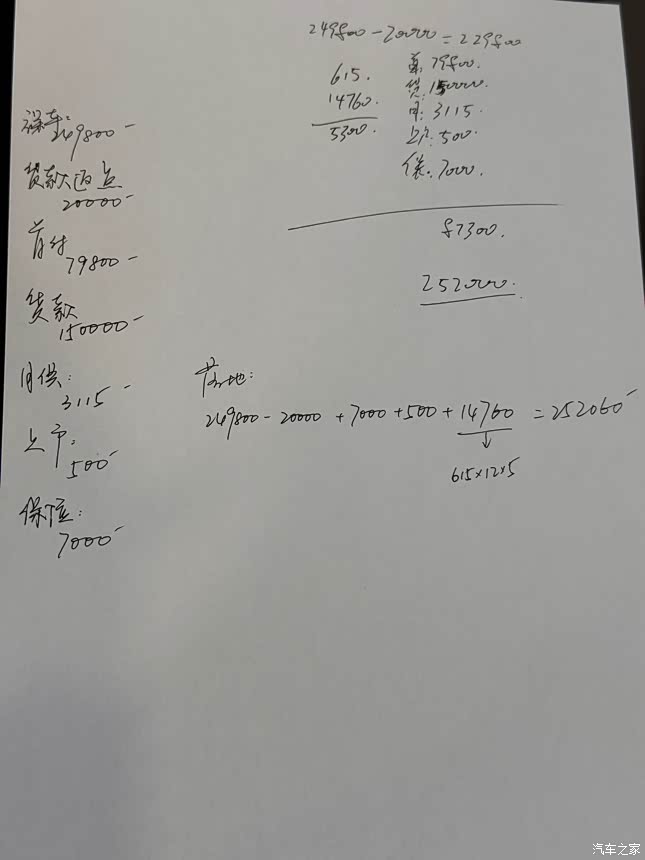 249800-20000=229800
615.
14760.
5300.
首:79800.
贷:150000.
月:3115
上户:500.
保:7000.
87300.
252000.
裸车:
249800-
贷款返点
20000-
首付
79800-
贷款
150000-
月供:
3115-
上户:
500-
保险:
7000-
落地:
249800-20000+7000+500+14760=252060-
↓
615×12×5
汽车之家